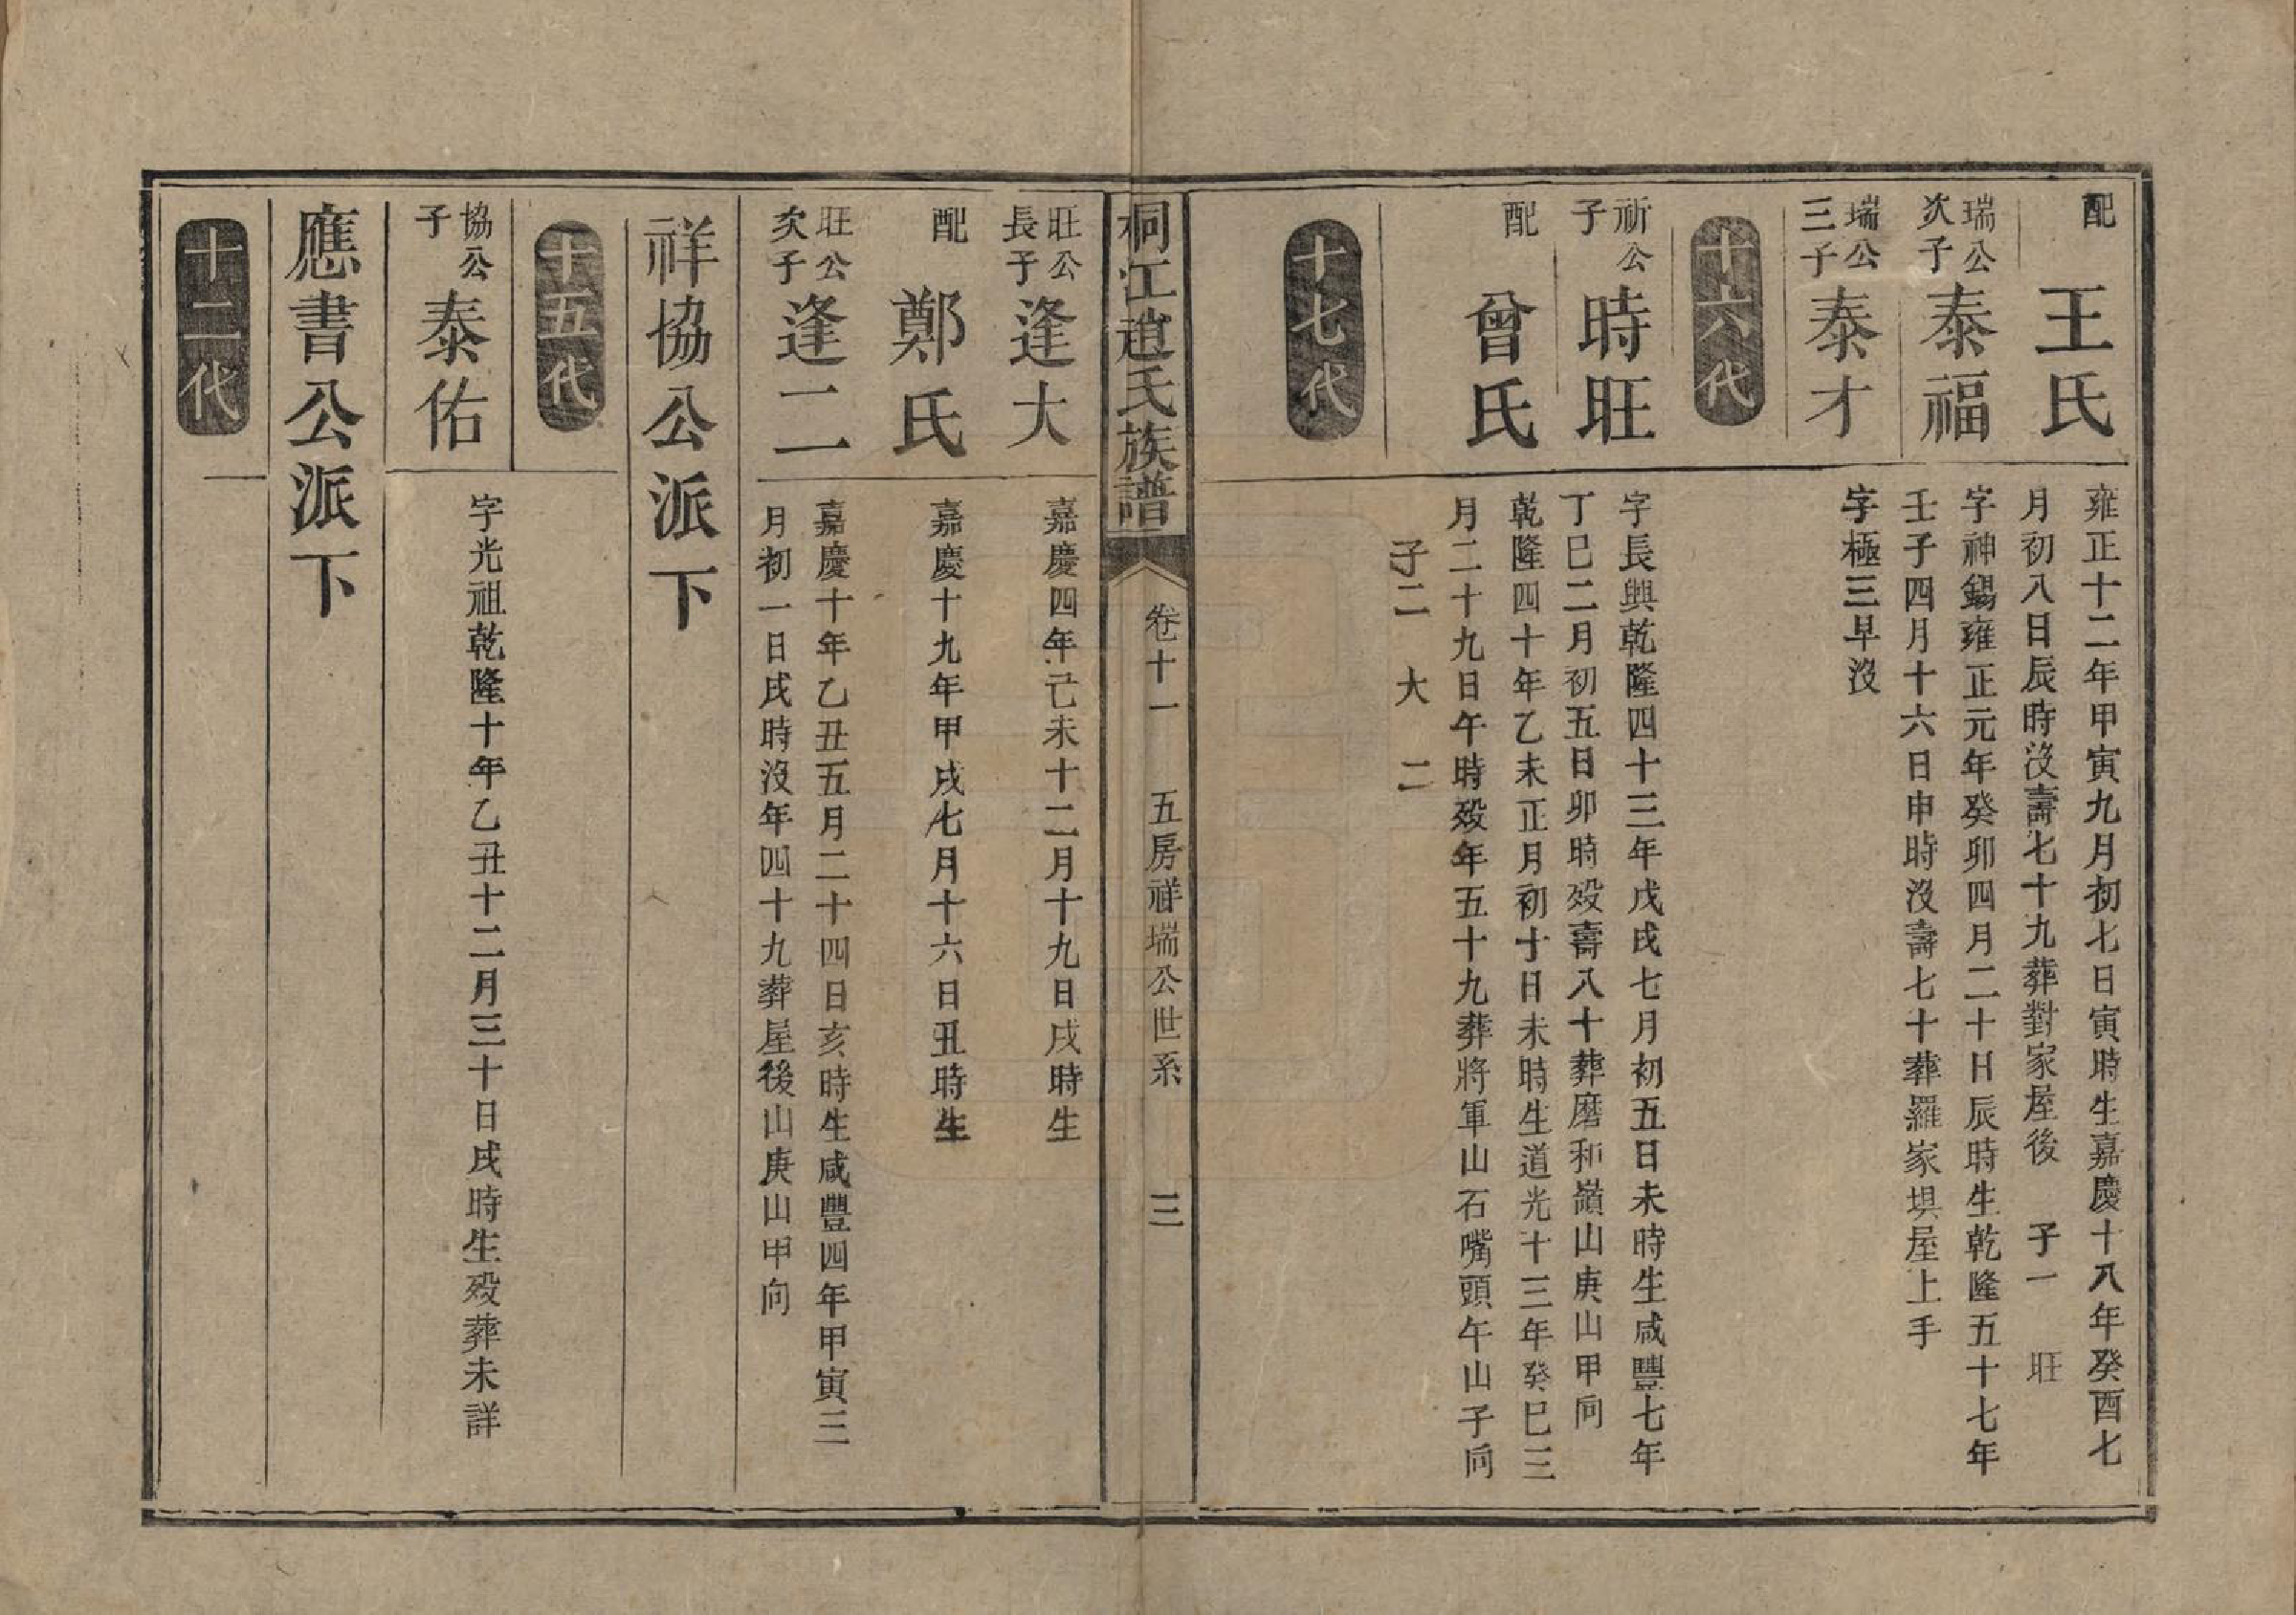 配
王氏
雍正十二年甲寅九月初七日寅時生嘉慶十八年癸酉七
月初八日辰時沒壽七十九葬對家屋後　子一　旺
瑞公
次子
泰福
字神錫雍正元年癸卯四月二十日辰時生乾隆五十七年
壬子四月十六日申時沒壽七十葬羅家垻屋上手
瑞公
三子
泰才
字極三早沒
十六代
祈公
子
時旺
字長興乾隆四十三年戊戌七月初五日未時生咸豐七年
丁巳二月初五日卯時歿壽八十葬磨和嶺山庚山甲向
配
曾氏
乾隆四十年乙未正月初十日未時生道光十三年癸巳三
月二十九日午時歿年五十九葬將軍山石嘴頭午山子向
子二　大　二
十七代
桐江趙氏族譜
卷十一　五房祥瑞公世系　三
旺公
長子
逢大
嘉慶四年己未十二月十九日戌時生
配
鄭氏
嘉慶十九年甲戌七月十六日丑時生
旺公
次子
逢二
嘉慶十年乙丑五月二十四日亥時生咸豐四年甲寅三
月初一日戌時沒年四十九葬屋後山庚山甲向
祥協公派下
十五代
協公
子
泰佑
字光祖乾隆十年乙丑十二月三十日戌時生歿葬未詳
應書公派下
十二代